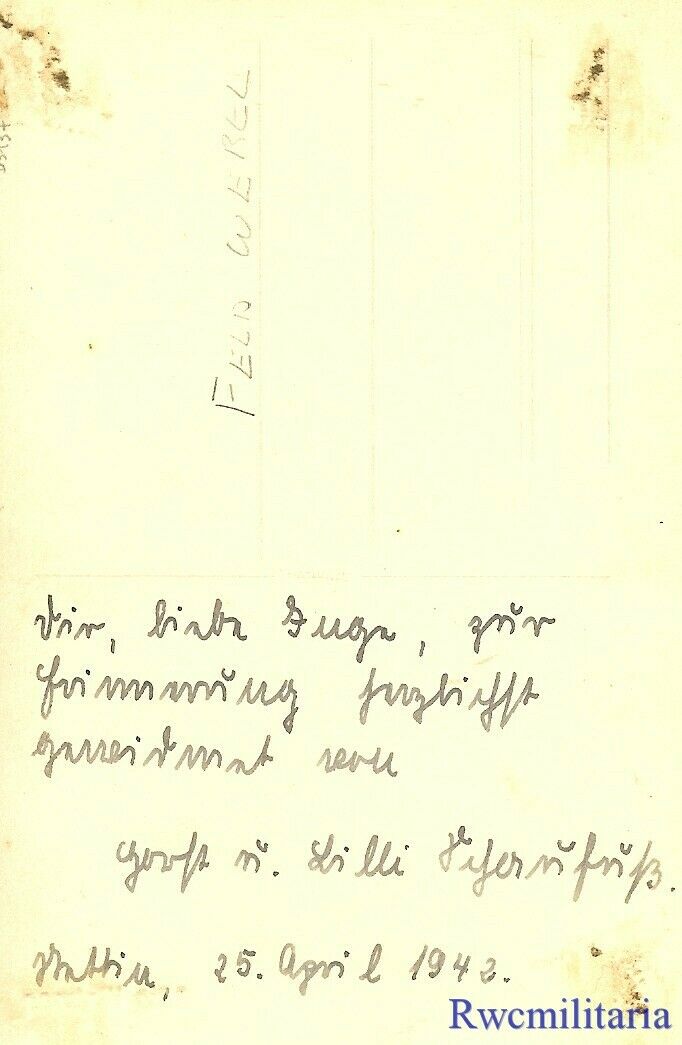 FELDWEBEL
Dir, liebe Inge, zur
Erinnerung herzlichst
gewidmet von
Horst u. Lilli Schaufuß.
Stettin, 25. April 1942.
Rwcmilitaria